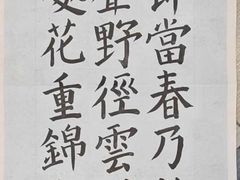 當春乃
野徑雲
花重錦